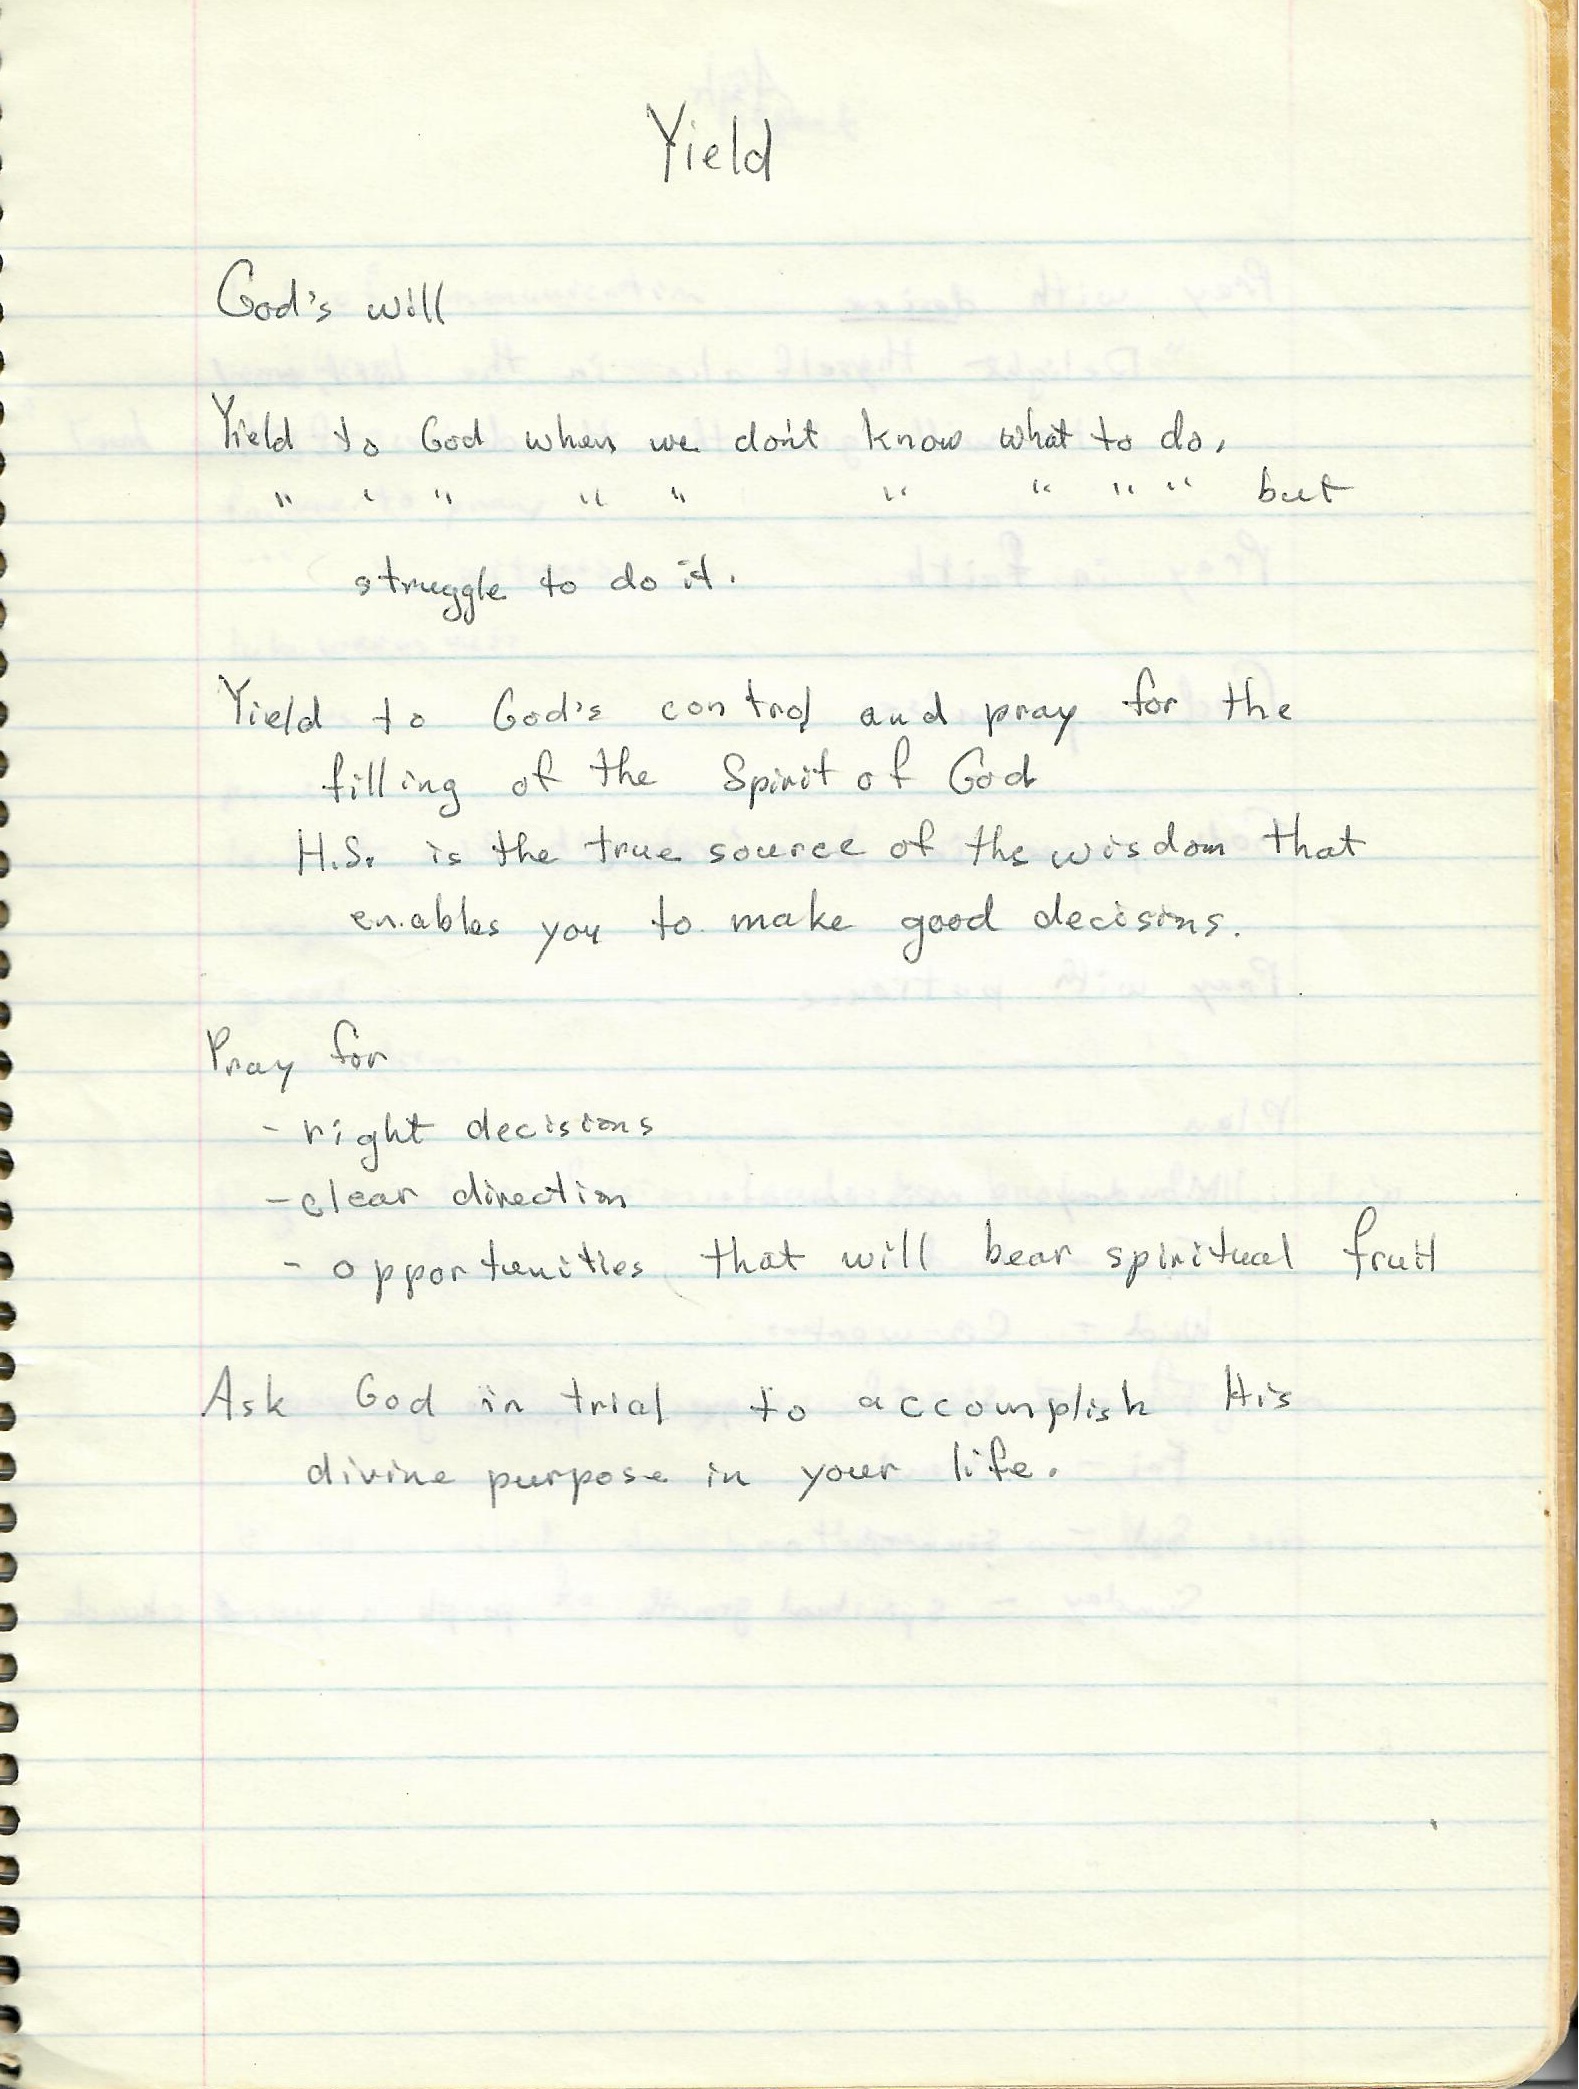 Yield
God's will
Yield to God when we don't know what to do,
" " " " " " " " " but
struggle to do it.
Yield to God's control and pray for the
filling of the Spirit of God
H.S. is the true source of the wisdom that
enables you to make good decisions.
Pray for
- right decisions
- clear direction
- opportunities that will bear spiritual fruit
Ask God in trial to accomplish His
divine purpose in your life.